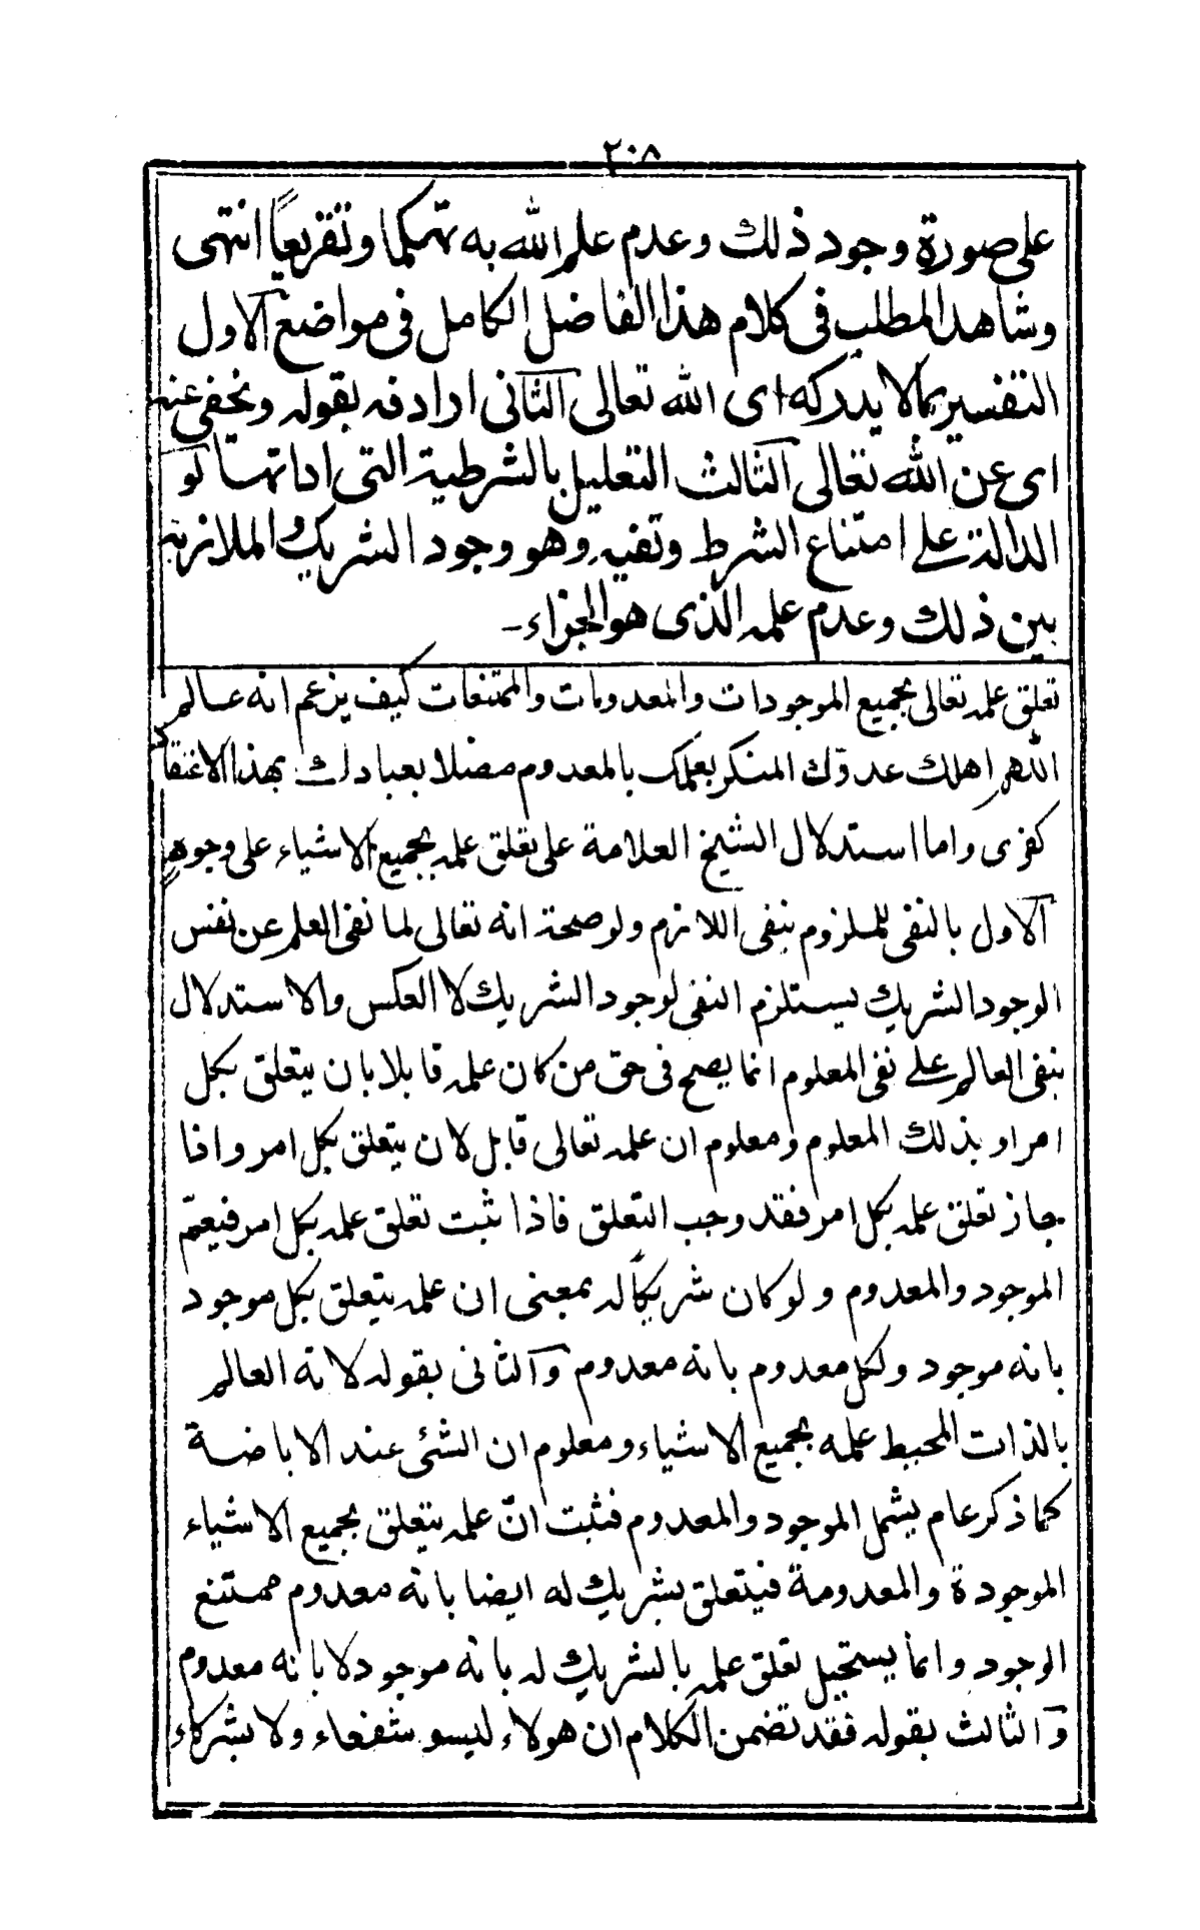 ٢٠٨
على صورة وجود ذلك وعدم علم الله به تهكما وتقريعاً انتهى
وشاهد المطلب فى كلام هذا الفاضل الكامل فى مواضع الاول
التفسير بما لا يدركه اى الله تعالى الثانى ارادفه بقوله ويخفى عنه
اى عن الله تعالى الثالث التعليل بالشرطية التى اداتها لو
الدالة على امتناع الشرط ونفيه وهو وجود الشريك والملازمة
بين ذلك وعدم علمه الذى هو الجزاء-
تعلق علمه تعالى بجميع الموجودات والمعدومات والممتنعات كيف يزعم انه عالم
اللهم اهلك عدوّك المنكر بعلمك بالمعدوم مضلا بعبادك بهذا الاعتقاد
كفرى واما استدلال الشيخ العلامة على تعلق علمه بجميع الاشياء على وجوهٍ
الاول بالنفى للملزوم بنفى اللازم ولو صحة انه تعالى لما نفى العلم عن نفس
الوجود الشريك يستلزم النفى لوجود الشريك لا العكس والاستدلال
بنفى العالم على نفى المعلوم انما يصح فى حق من كان علمه قابلا بان يتعلق بكل
امر او بذلك المعلوم ومعلوم ان علمه تعالى قابل لان يتعلق بكل امر واذا
جاز تعلق علمه بكل امر فقد وجب التعلق فاذا ثبت تعلق علمه بكل امر فيعمّ
الموجود والمعدوم ولو كان شريكاً له بمعنى ان علمه يتعلق بكل موجود
بانه موجود ولكل معدوم بانه معدوم والثانى بقوله لانه العالم
بالذات المحيط علمه بجميع الاشياء ومعلوم ان الشئى عند الاباضة
كما ذكر عام يشمل الموجود والمعدوم فثبت انّ علمه يتعلق بجميع الاشياء
الموجودة والمعدومة فيتعلق بشريك له ايضا بانه معدوم ممتنع
الوجود وانما يستحيل تعلق علمه بالشريك له بانه موجود لا بانه معدوم
والثالث بقوله فقد تضمن الكلام ان هولاء ليسو شفعاء ولا بشركاء